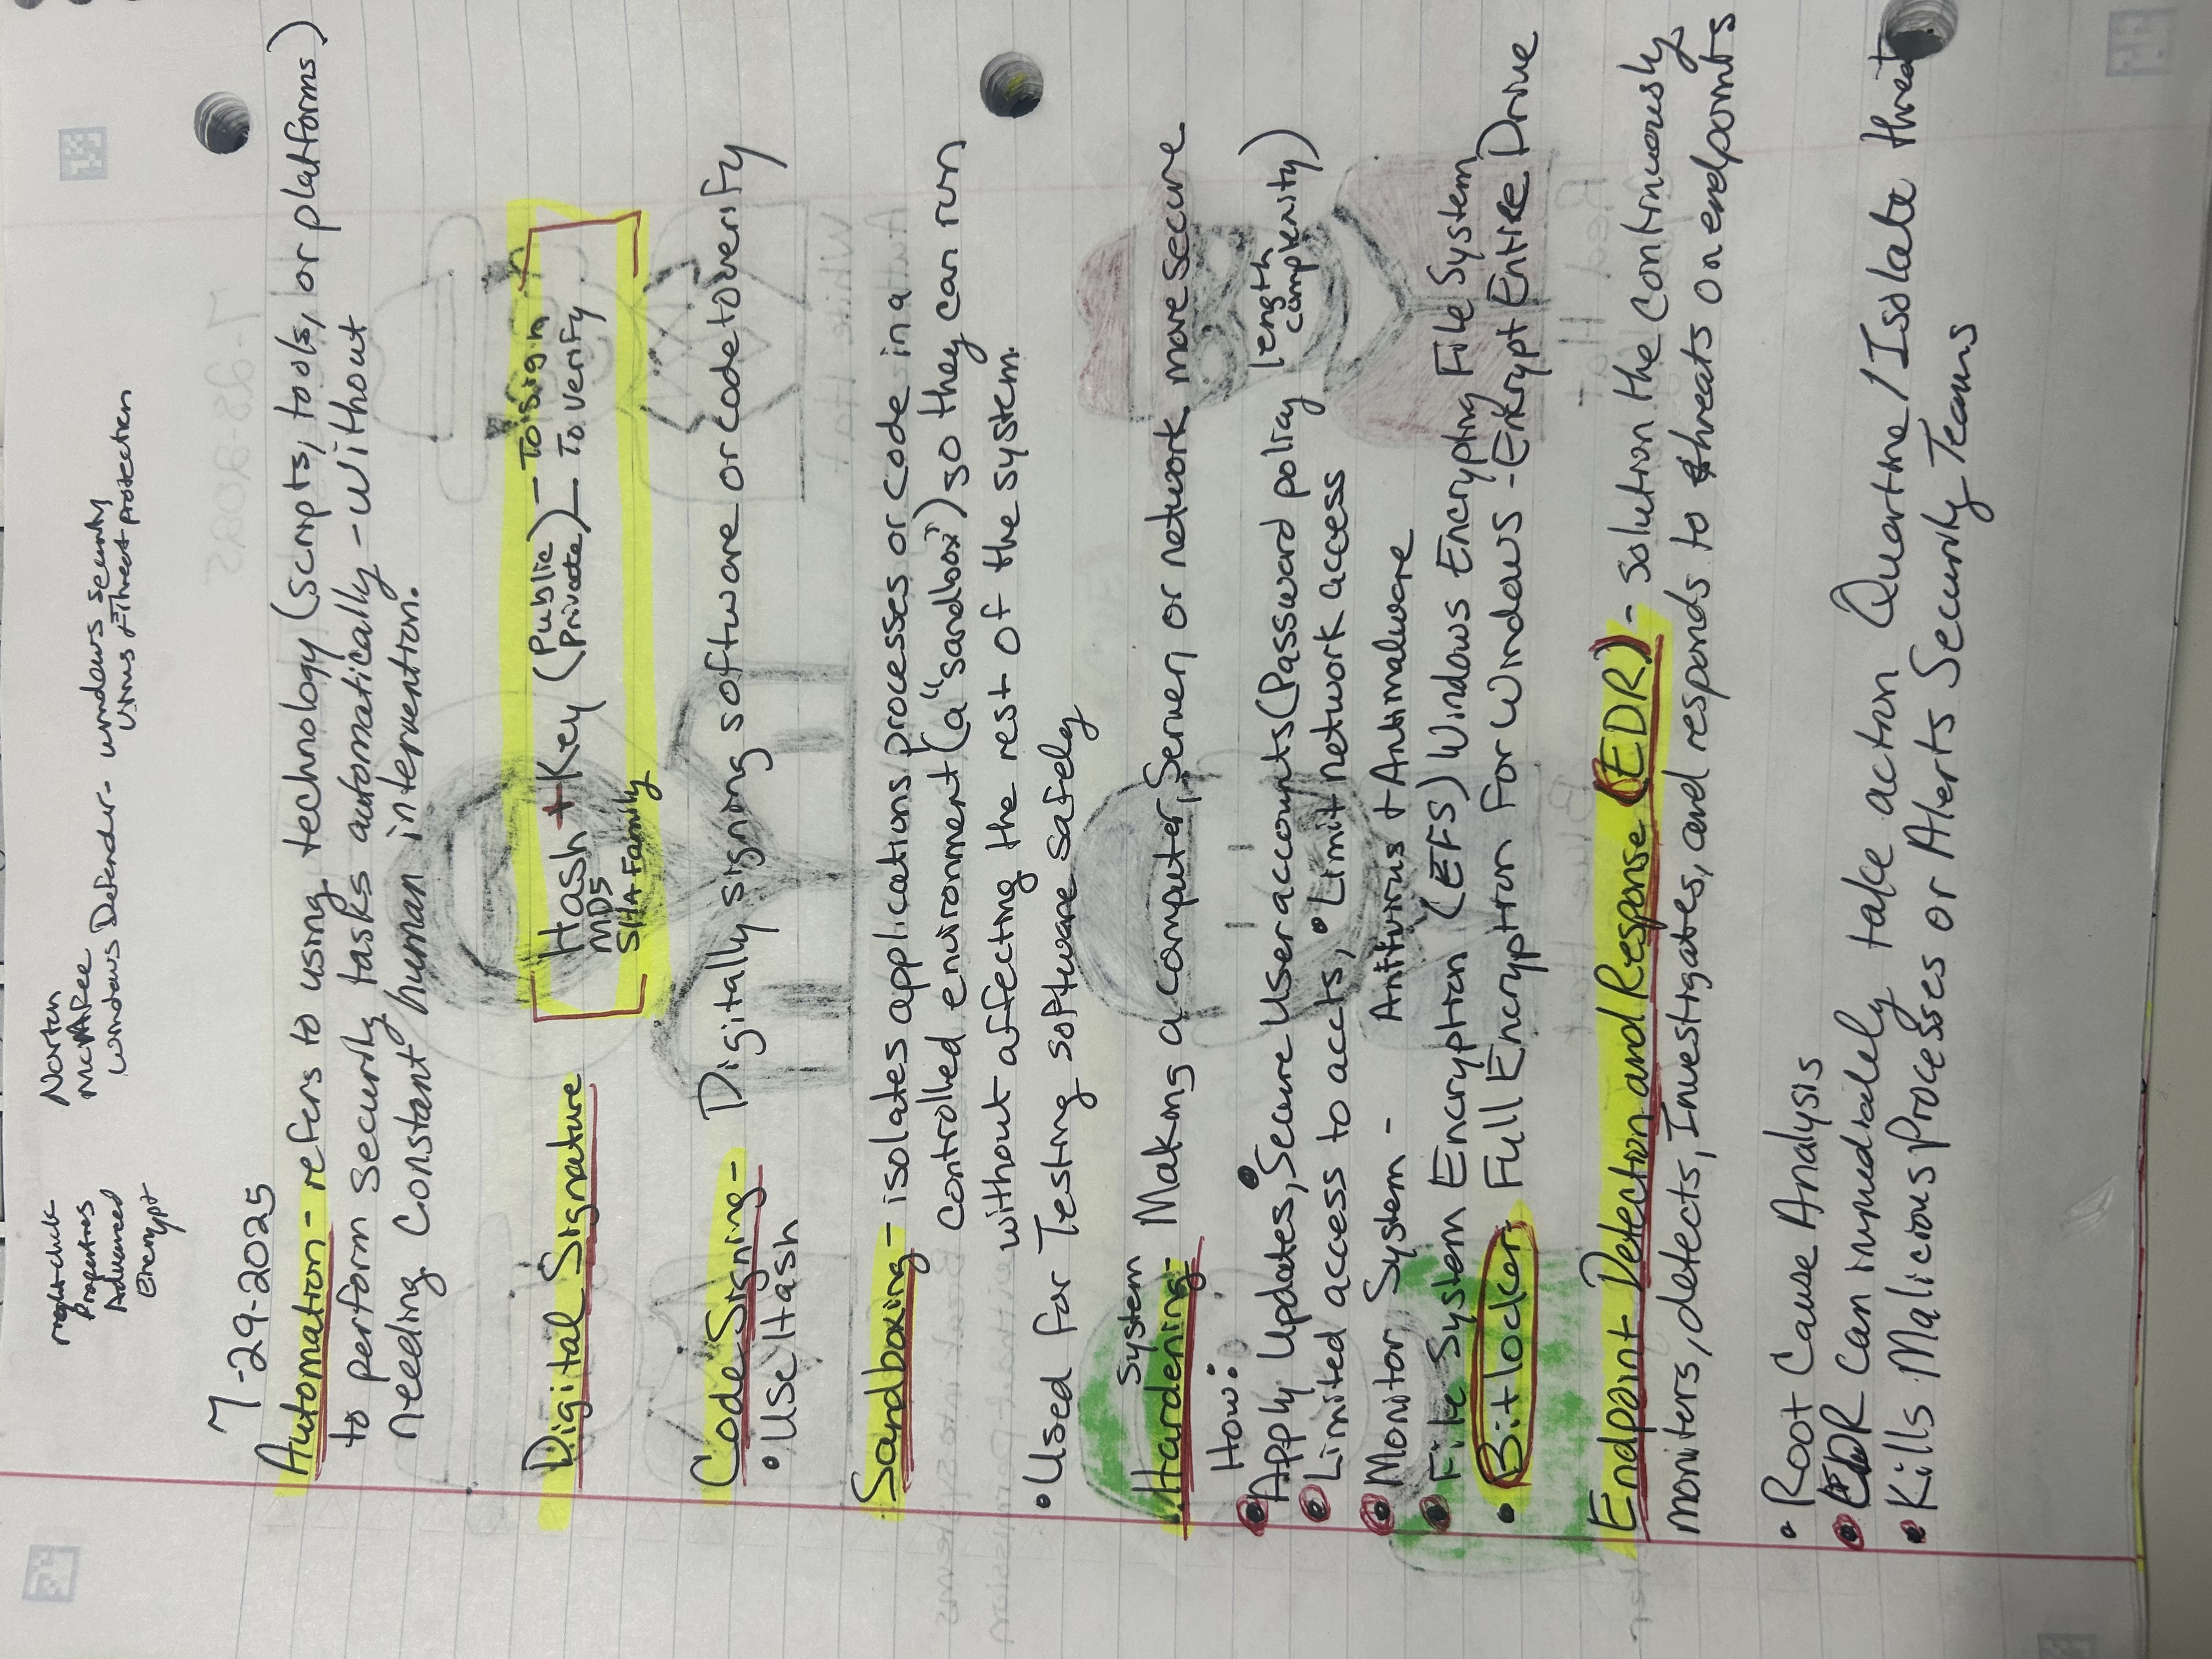 right click
Properties
Advanced
Encrypt
Norton
McAfee
Windows Defender - windows security
virus & threat protection
7-29-2025
Automation - refers to using technology (scripts, tools, or platforms)
to perform security tasks automatically - without
needing constant human intervention.
Digital Signature
Hash + Key (Public Private) - To Sign
- To verify
MD5
SHA Family
Code Signing - Digitally signing software or code to verify
• Use Hash
Sandboxing - isolates applications processes or code in a
controlled environment (a "sandbox") so they can run
without affecting the rest of the system.
• Used for Testing software safely
System
Hardening - Making a computer, Server, or network more secure
How:
• Apply Updates, • Secure User accounts (Password policy length
complexity)
• Limited access to accts, • Limit network access
• Monitor System - Antivirus + Antimalware
• File System Encryption (EFS) Windows Encrypting File System
• Bitlocker - Full Encryption for Windows - Enkrypt Entire Drive
Endpoint Detection and Response (EDR) - solution the continuously
moniters, detects, Investigates, and responds to threats on endpoints
• Root Cause Analysis
• EDR can immediately take action Quartine / Isolate threat
• Kills Malicious Processes or Alerts Security Teams
7-28-2025
White Hat
Break into systems
without permission
Blue Hat
Red Hat